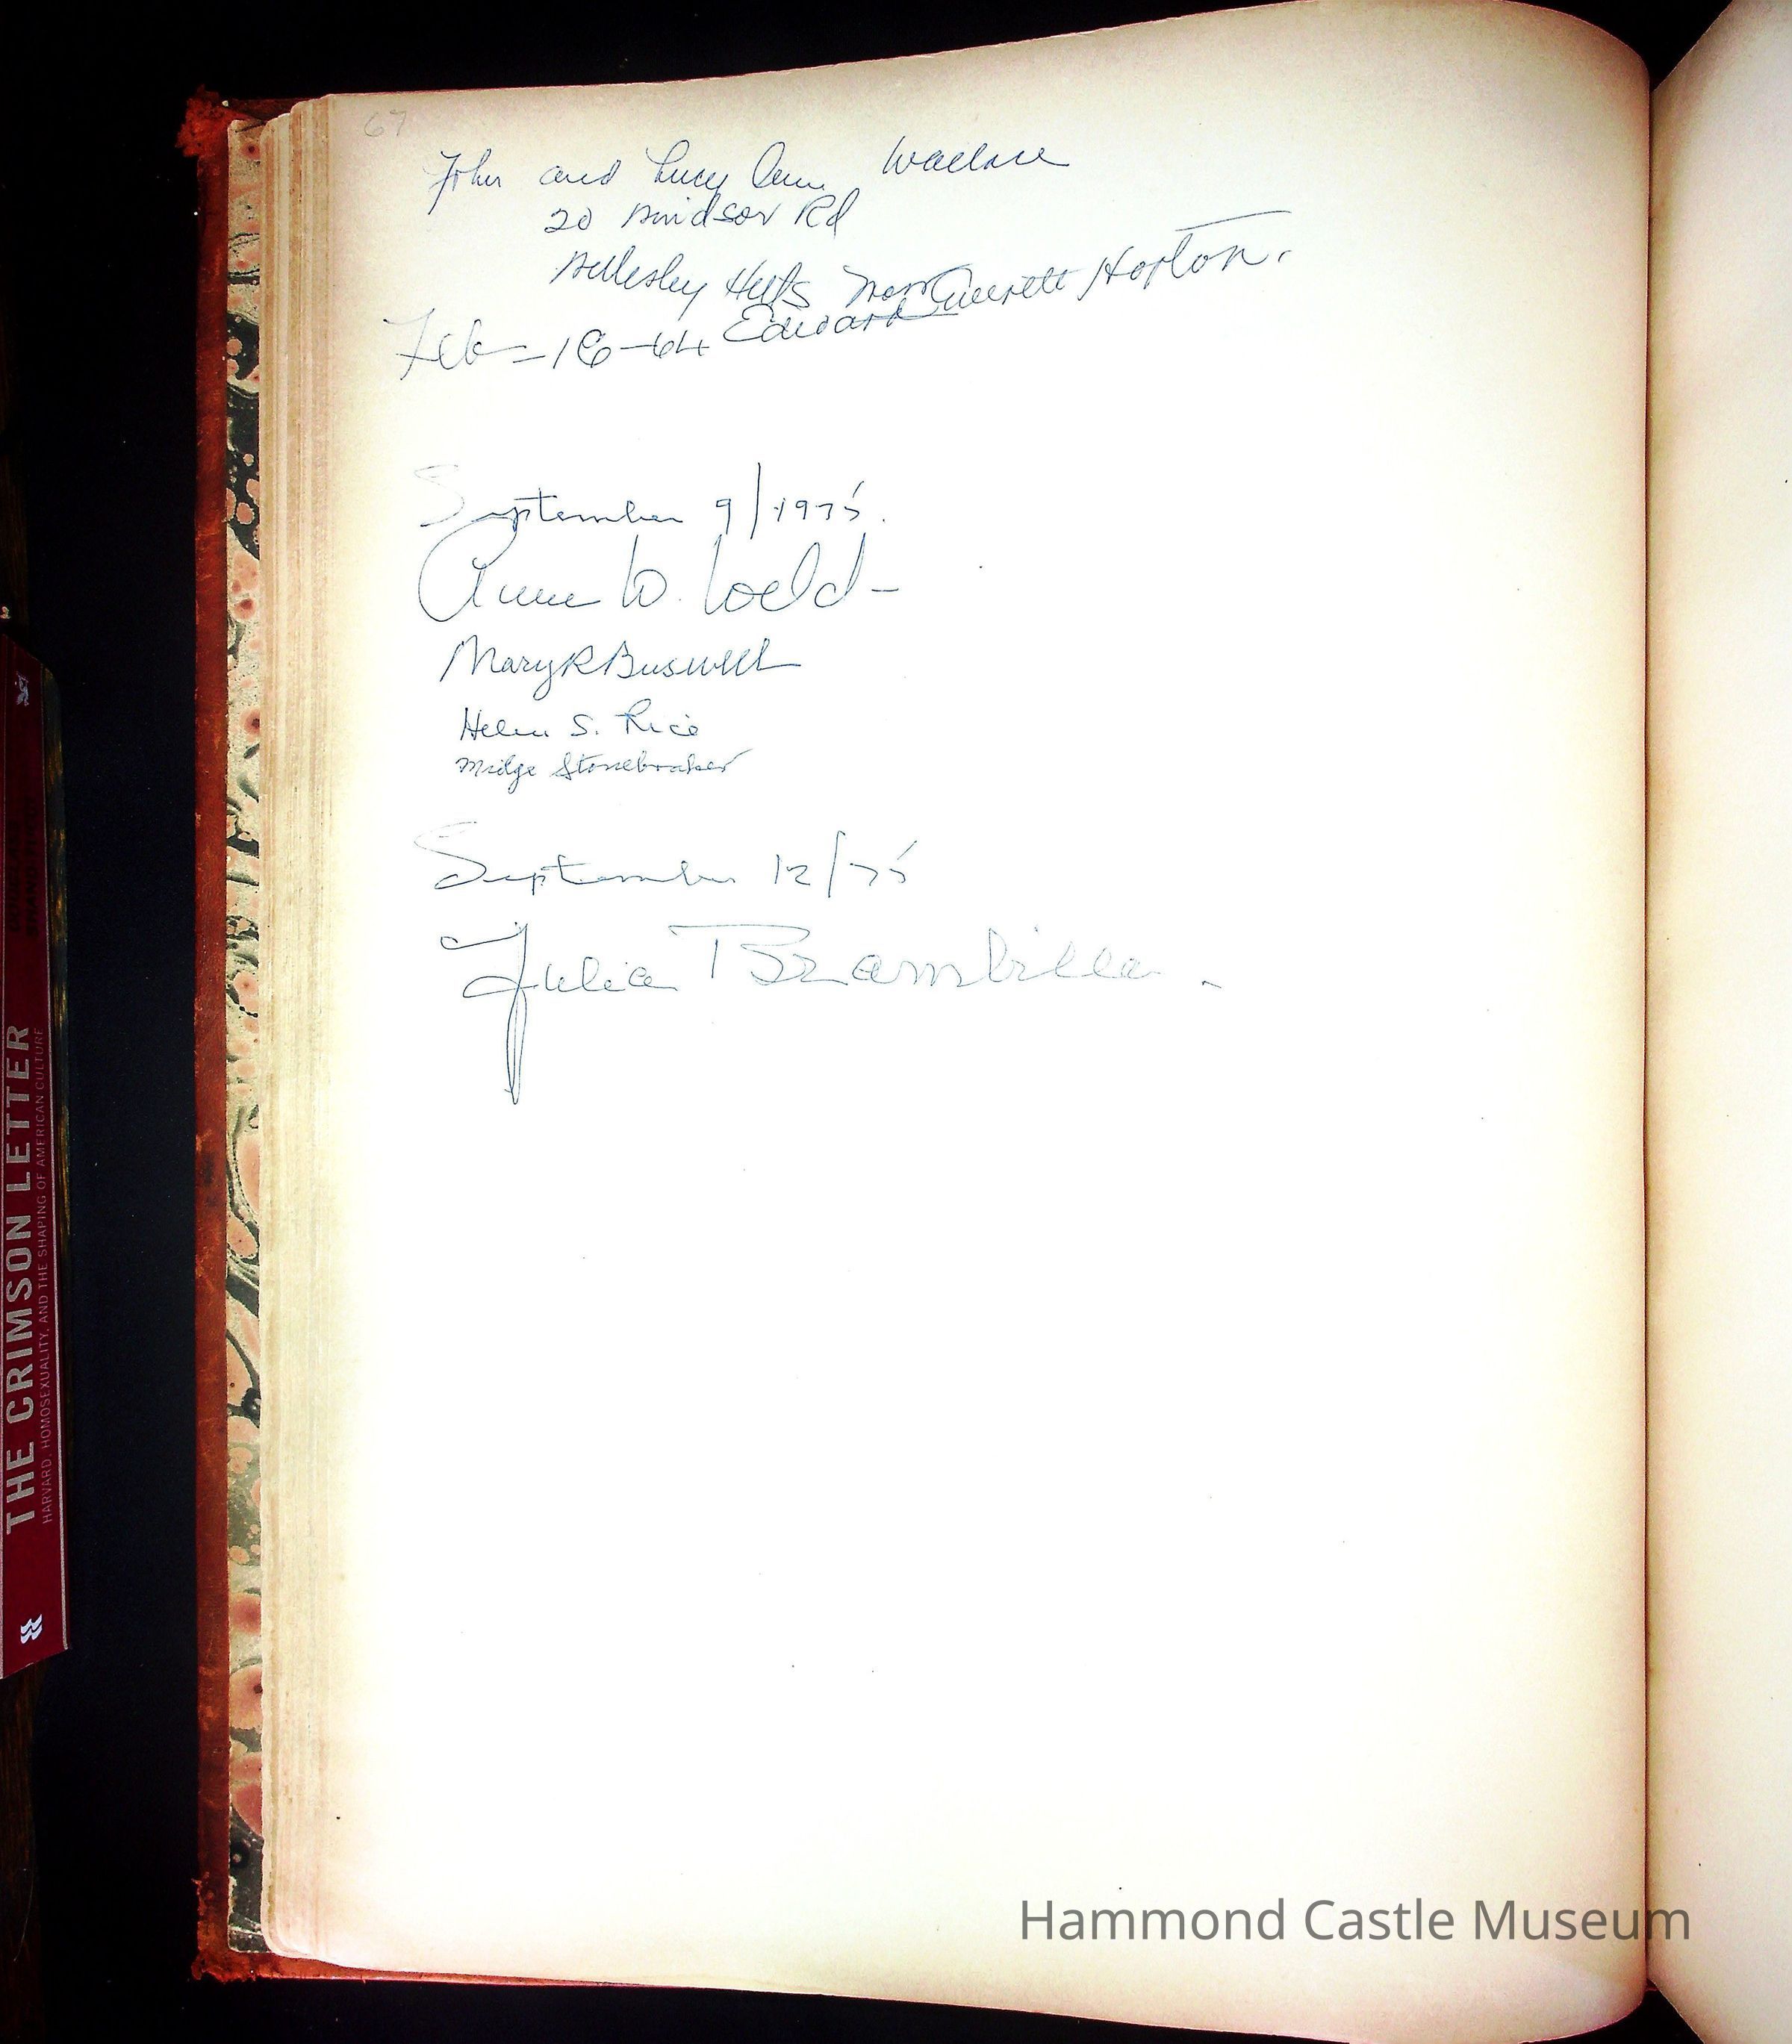 67
John and Lucy Ann Wallace
20 Windsor Rd
Wellesley Hills Mass
Edward Everett Horton.
Feb - 18 - 64
September 9/1975.
Anne W. Weld -
Mary R Buswell
Helen S. Rice
Midge Stonebraker
September 12/75
Julia Brambilla.
THE CRIMSON LETTER
HARVARD, HOMOSEXUALITY, AND THE SHAPING OF AMERICAN CULTURE
Hammond Castle Museum